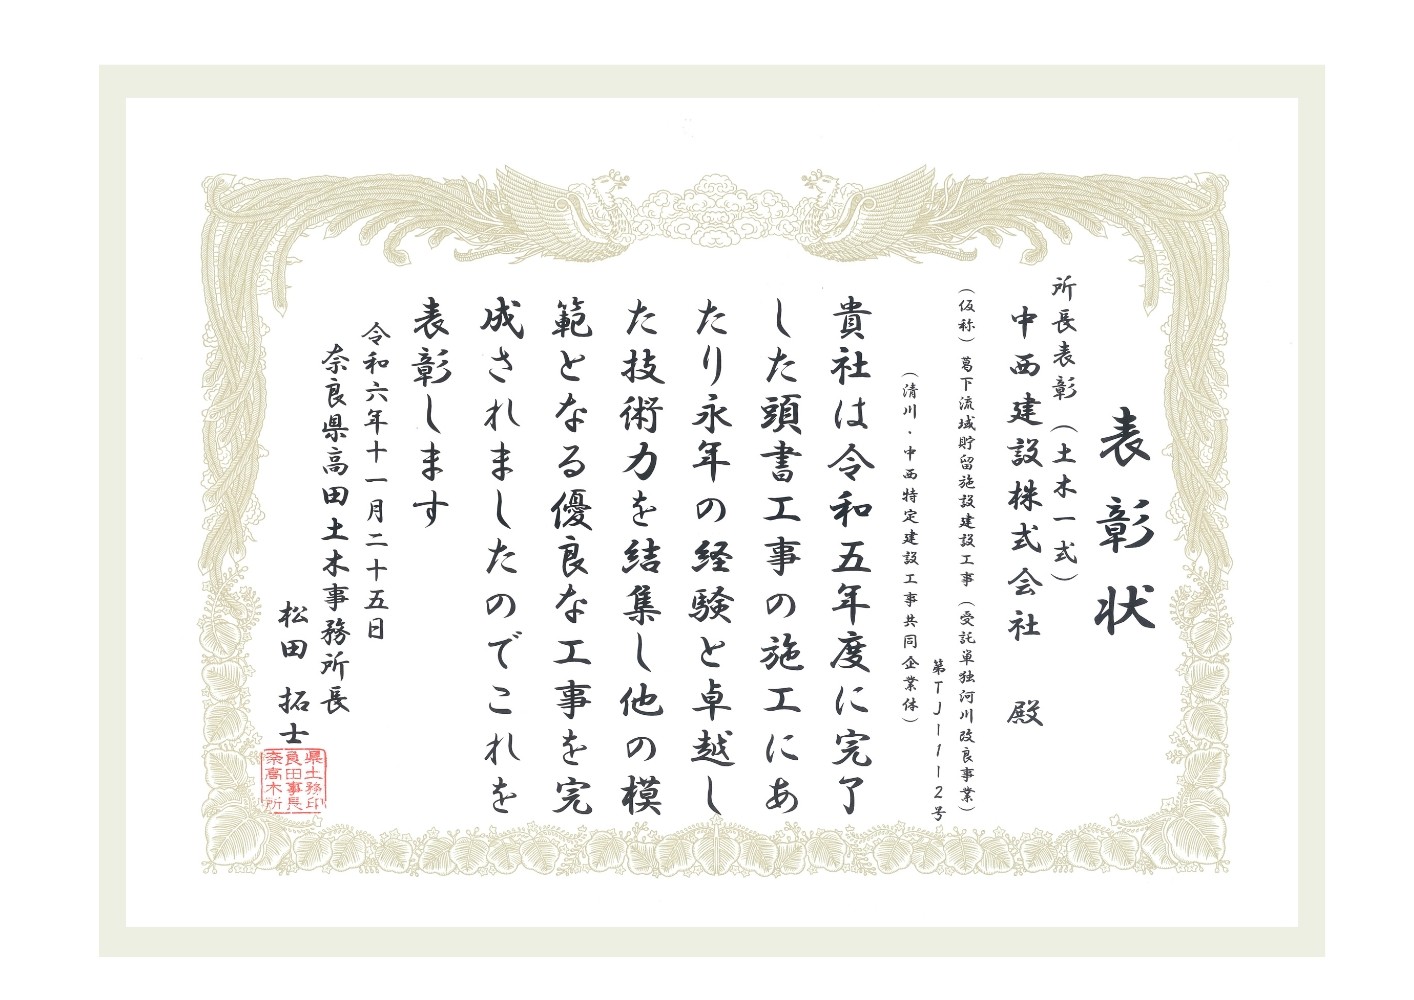 表彰状
所長表彰（土木一式）
中西建設株式会社　殿
（仮称）葛下流域貯留施設建設工事（受託単独河川改良事業）
第TJ-11-2号
（清川・中西特定建設工事共同企業体）
貴社は令和五年度に完了
した頭書工事の施工にあ
たり永年の経験と卓越し
た技術力を結集し他の模
範となる優良な工事を完
成されましたのでこれを
表彰します
令和六年十一月二十五日
奈良県高田土木事務所長
松田　拓士
県土務印
良田事長
奈高木所